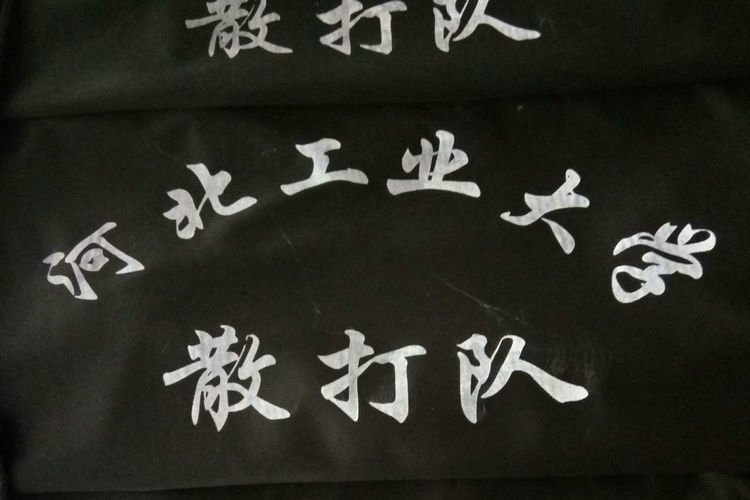 散打队
河北工业大学
散打队